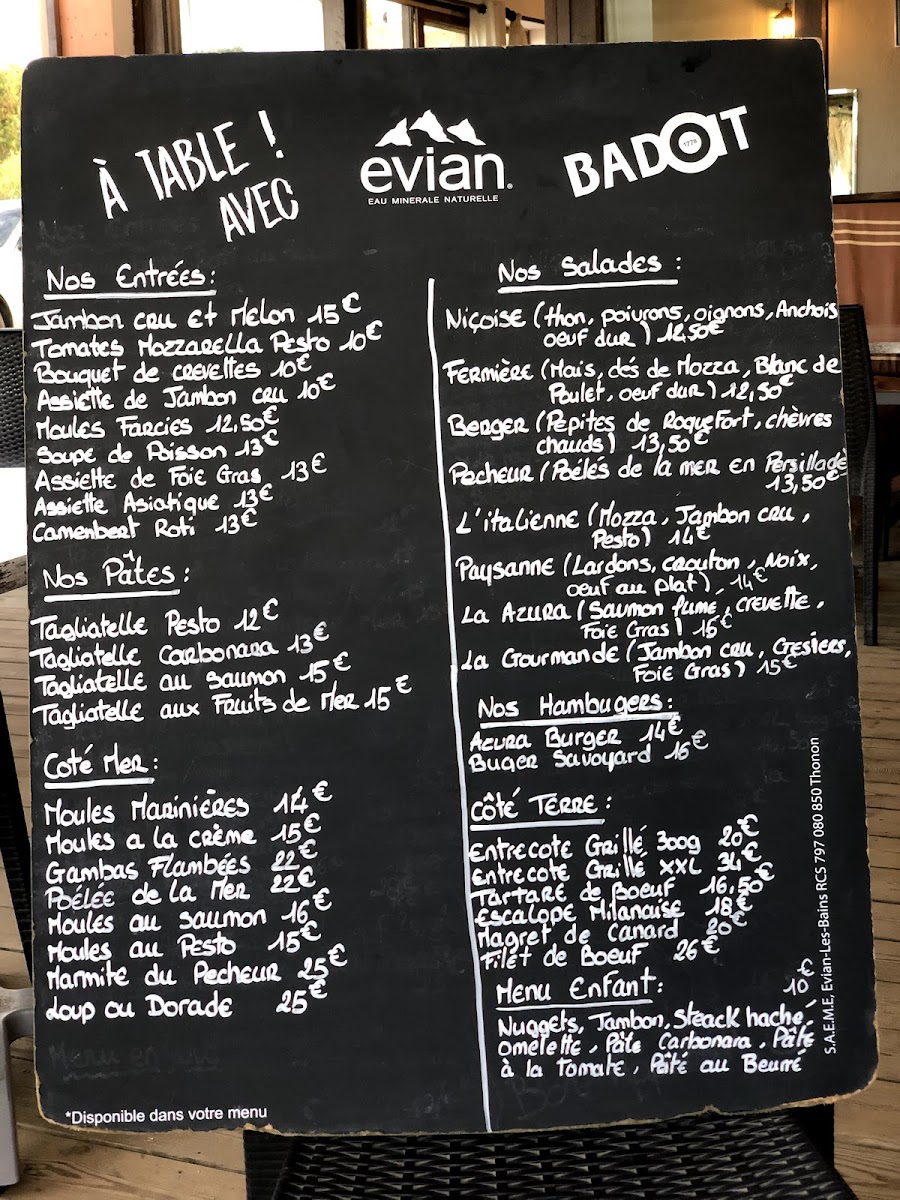 À TABLE !
AVEC
evian.
EAU MINERALE NATURELLE
BADOIT
1778
Nos Entrées :
Jambon cru et Melon 15€
Tomates Mozzarella Pesto 10€
Bouquet de crevettes 10€
Assiette de Jambon cru 10€
Moules Farcies 12,50€
Soupe de Poisson 13€
Assiette de Foie Gras 13€
Assiette Asiatique 13€
Camenbert Roti 13€
Nos Pâtes :
Tagliatelle Pesto 12€
Tagliatelle Carbonara 13€
Tagliatelle au saumon 15€
Tagliatelle aux Fruits de Mer 15€
Coté Mer :
Moules Marinières 14€
Moules a la crème 15€
Gambas Flambées 22€
Poélée de la Mer 22€
Moules au saumon 16€
Moules au Pesto 15€
Marmite du Pecheur 25€
Loup ou Dorade 25€
*Disponible dans votre menu
Nos Salades :
Niçoise (thon, poivrons, oignons, Anchois
oeuf dur) 12,50€
Fermière (Mais, dés de Mozza, Blanc de
Poulet, oeuf dur) 12,50€
Berger (Pépites de Roquefort, chèvres
chauds) 13,50€
Pecheur (Poélés de la mer en Persillade
13,50€
L'italienne (Mozza, Jambon cru,
Pesto) 14€
Paysanne (Lardons, crouton, Noix,
oeuf au plat), 14€
La Azura (Saumon fumé, crevette,
Foie Gras) 15€
La Gourmande (Jambon cru, Gesiers,
Foie Gras) 15€
Nos Hambugers :
Azura Burger 14€
Buger Savoyard 16€
Côté Terre :
Entrecote Grillé 300g 20€
Entrecote Grillé XXL 34€
Tartare de Boeuf 16,50€
Escalope Milanaise 18€
Magret de Canard 20€
Filet de Boeuf 26€
Menu Enfant : 10€
Nuggets, Jambon, Steack haché,
Omelette, Pâte Carbonara, Pâte
à la Tomate, Pâté au Beurré
S.A.E.M.E, Evian-Les-Bains RCS 797 080 850 Thonon